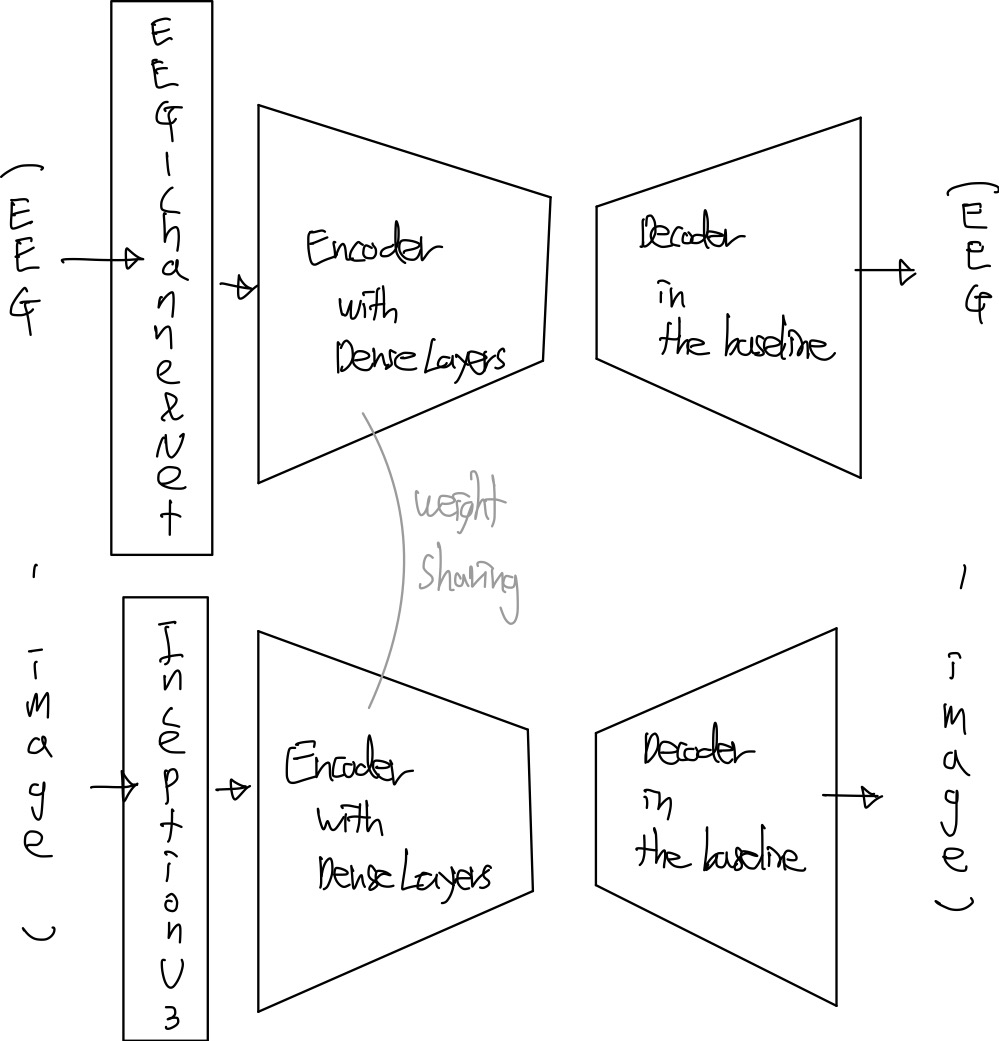 (EEG
EEGIchannelNet
Encoder
with
Dense Layers
Decoder
in
the baseline
(EEG
weight
sharing
, image)
InceptionV3
Encoder
with
Dense Layers
Decoder
in
the baseline
, image)